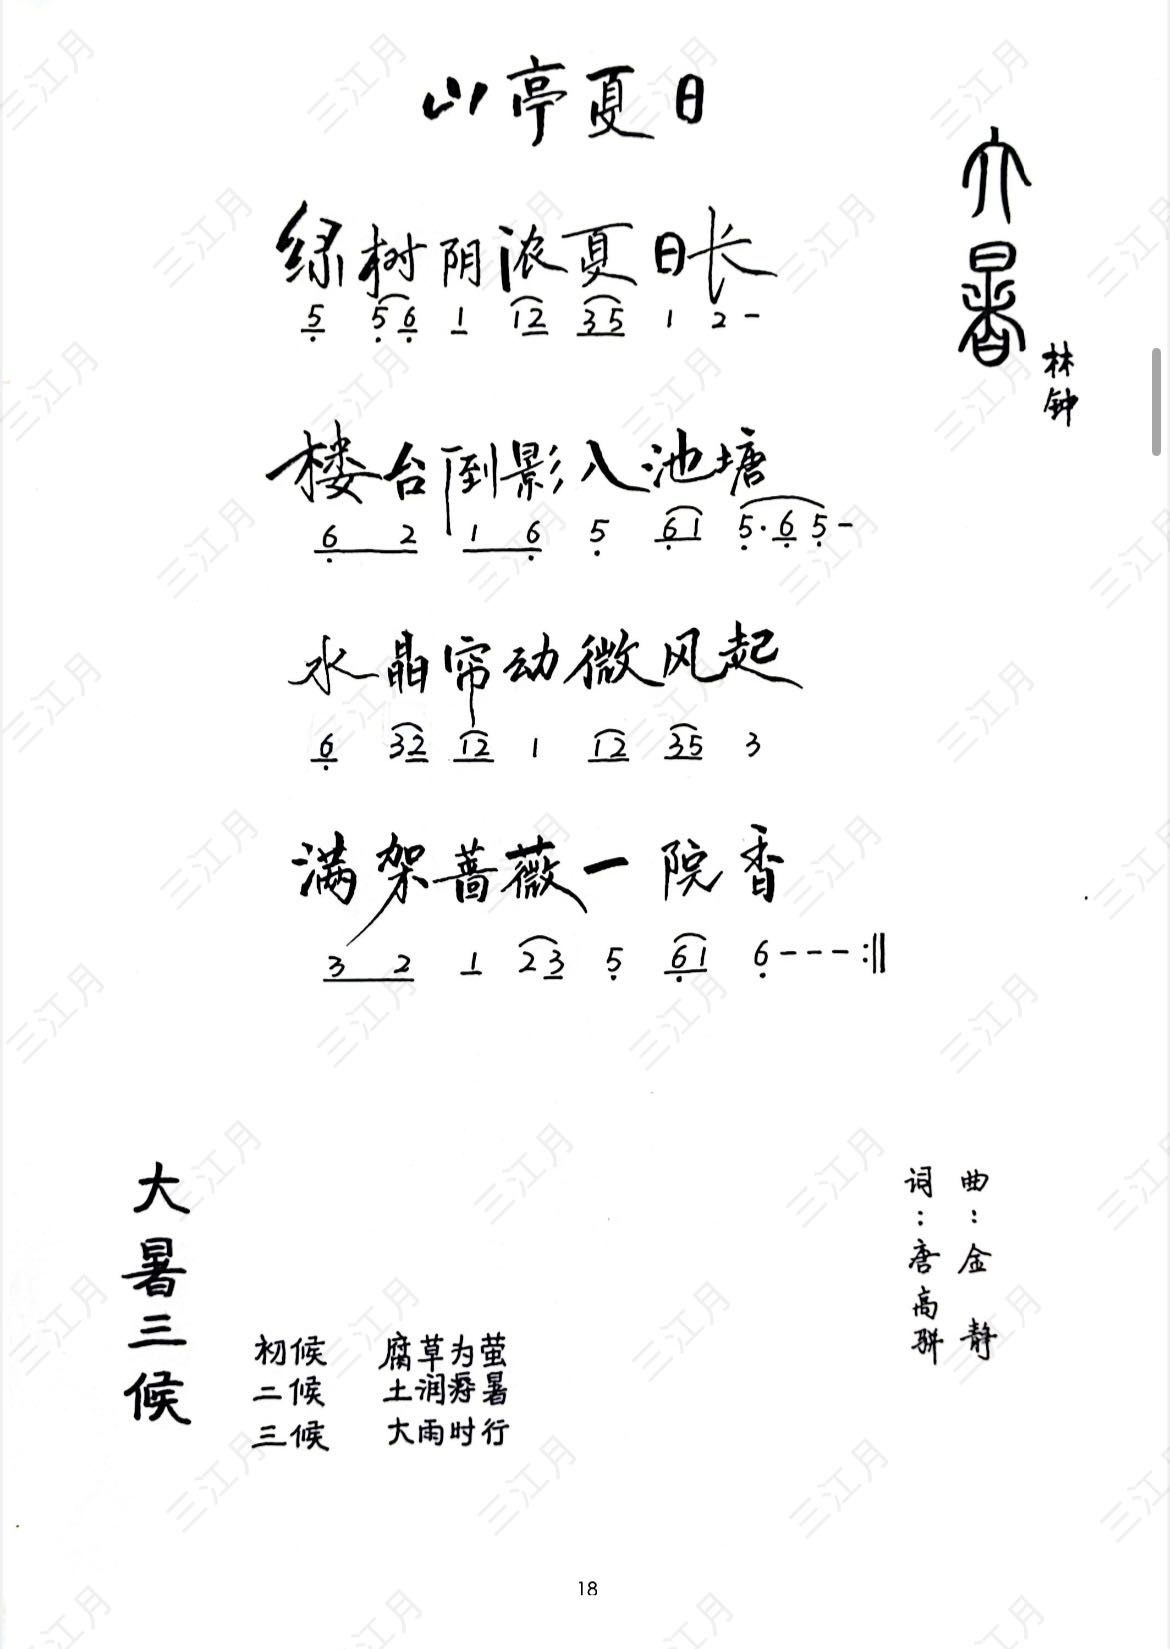 山亭夏日
大暑
林钟
绿树阴浓夏日长
5 56 1 12 35 1 2 -
楼台倒影入池塘
6 2 1 6 5 61 5·65-
水晶帘动微风起
6 32 12 1 12 35 3
满架蔷薇一院香
3 2 1 23 5 61 6---:||
曲:金静
词:唐高骈
大暑三候
初候 腐草为萤
二候 土润溽暑
三候 大雨时行
18
三江月